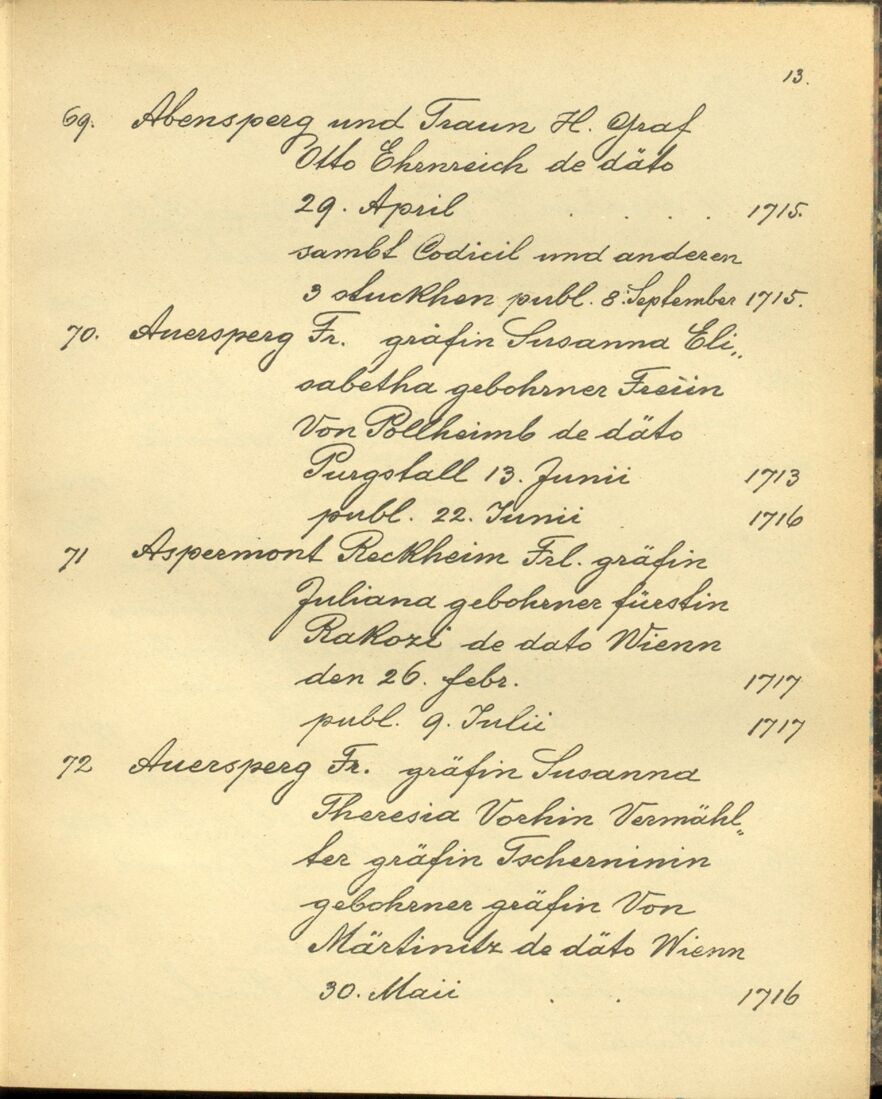 13.
69. Abensperg und Traun H. Graf
Otto Ehrnreich de däto
29. April . . . . 1715.
sambt Codicil und anderen
3 stuckhen publ. 8. September 1715.
70. Auersperg Fr. gräfin Susanna Eli„
sabetha gebohrner Freiin
Von Pollheimb de däto
Purgstall 13. Junii 1713
publ. 22. Iunii . 1716
71 Aspermont Reckheim Frl. gräfin
Juliana gebohrner fürstin
Rakozi de dato Wienn
den 26. febr. 1717
publ. 9. Iulii 1717
72 Auersperg Fr. gräfin Susanna
Theresia Vorhin Vermähl„
ter gräfin Tscherninin
gebohrner gräfin Von
Märtinitz de däto Wienn
30. Maii . . 1716